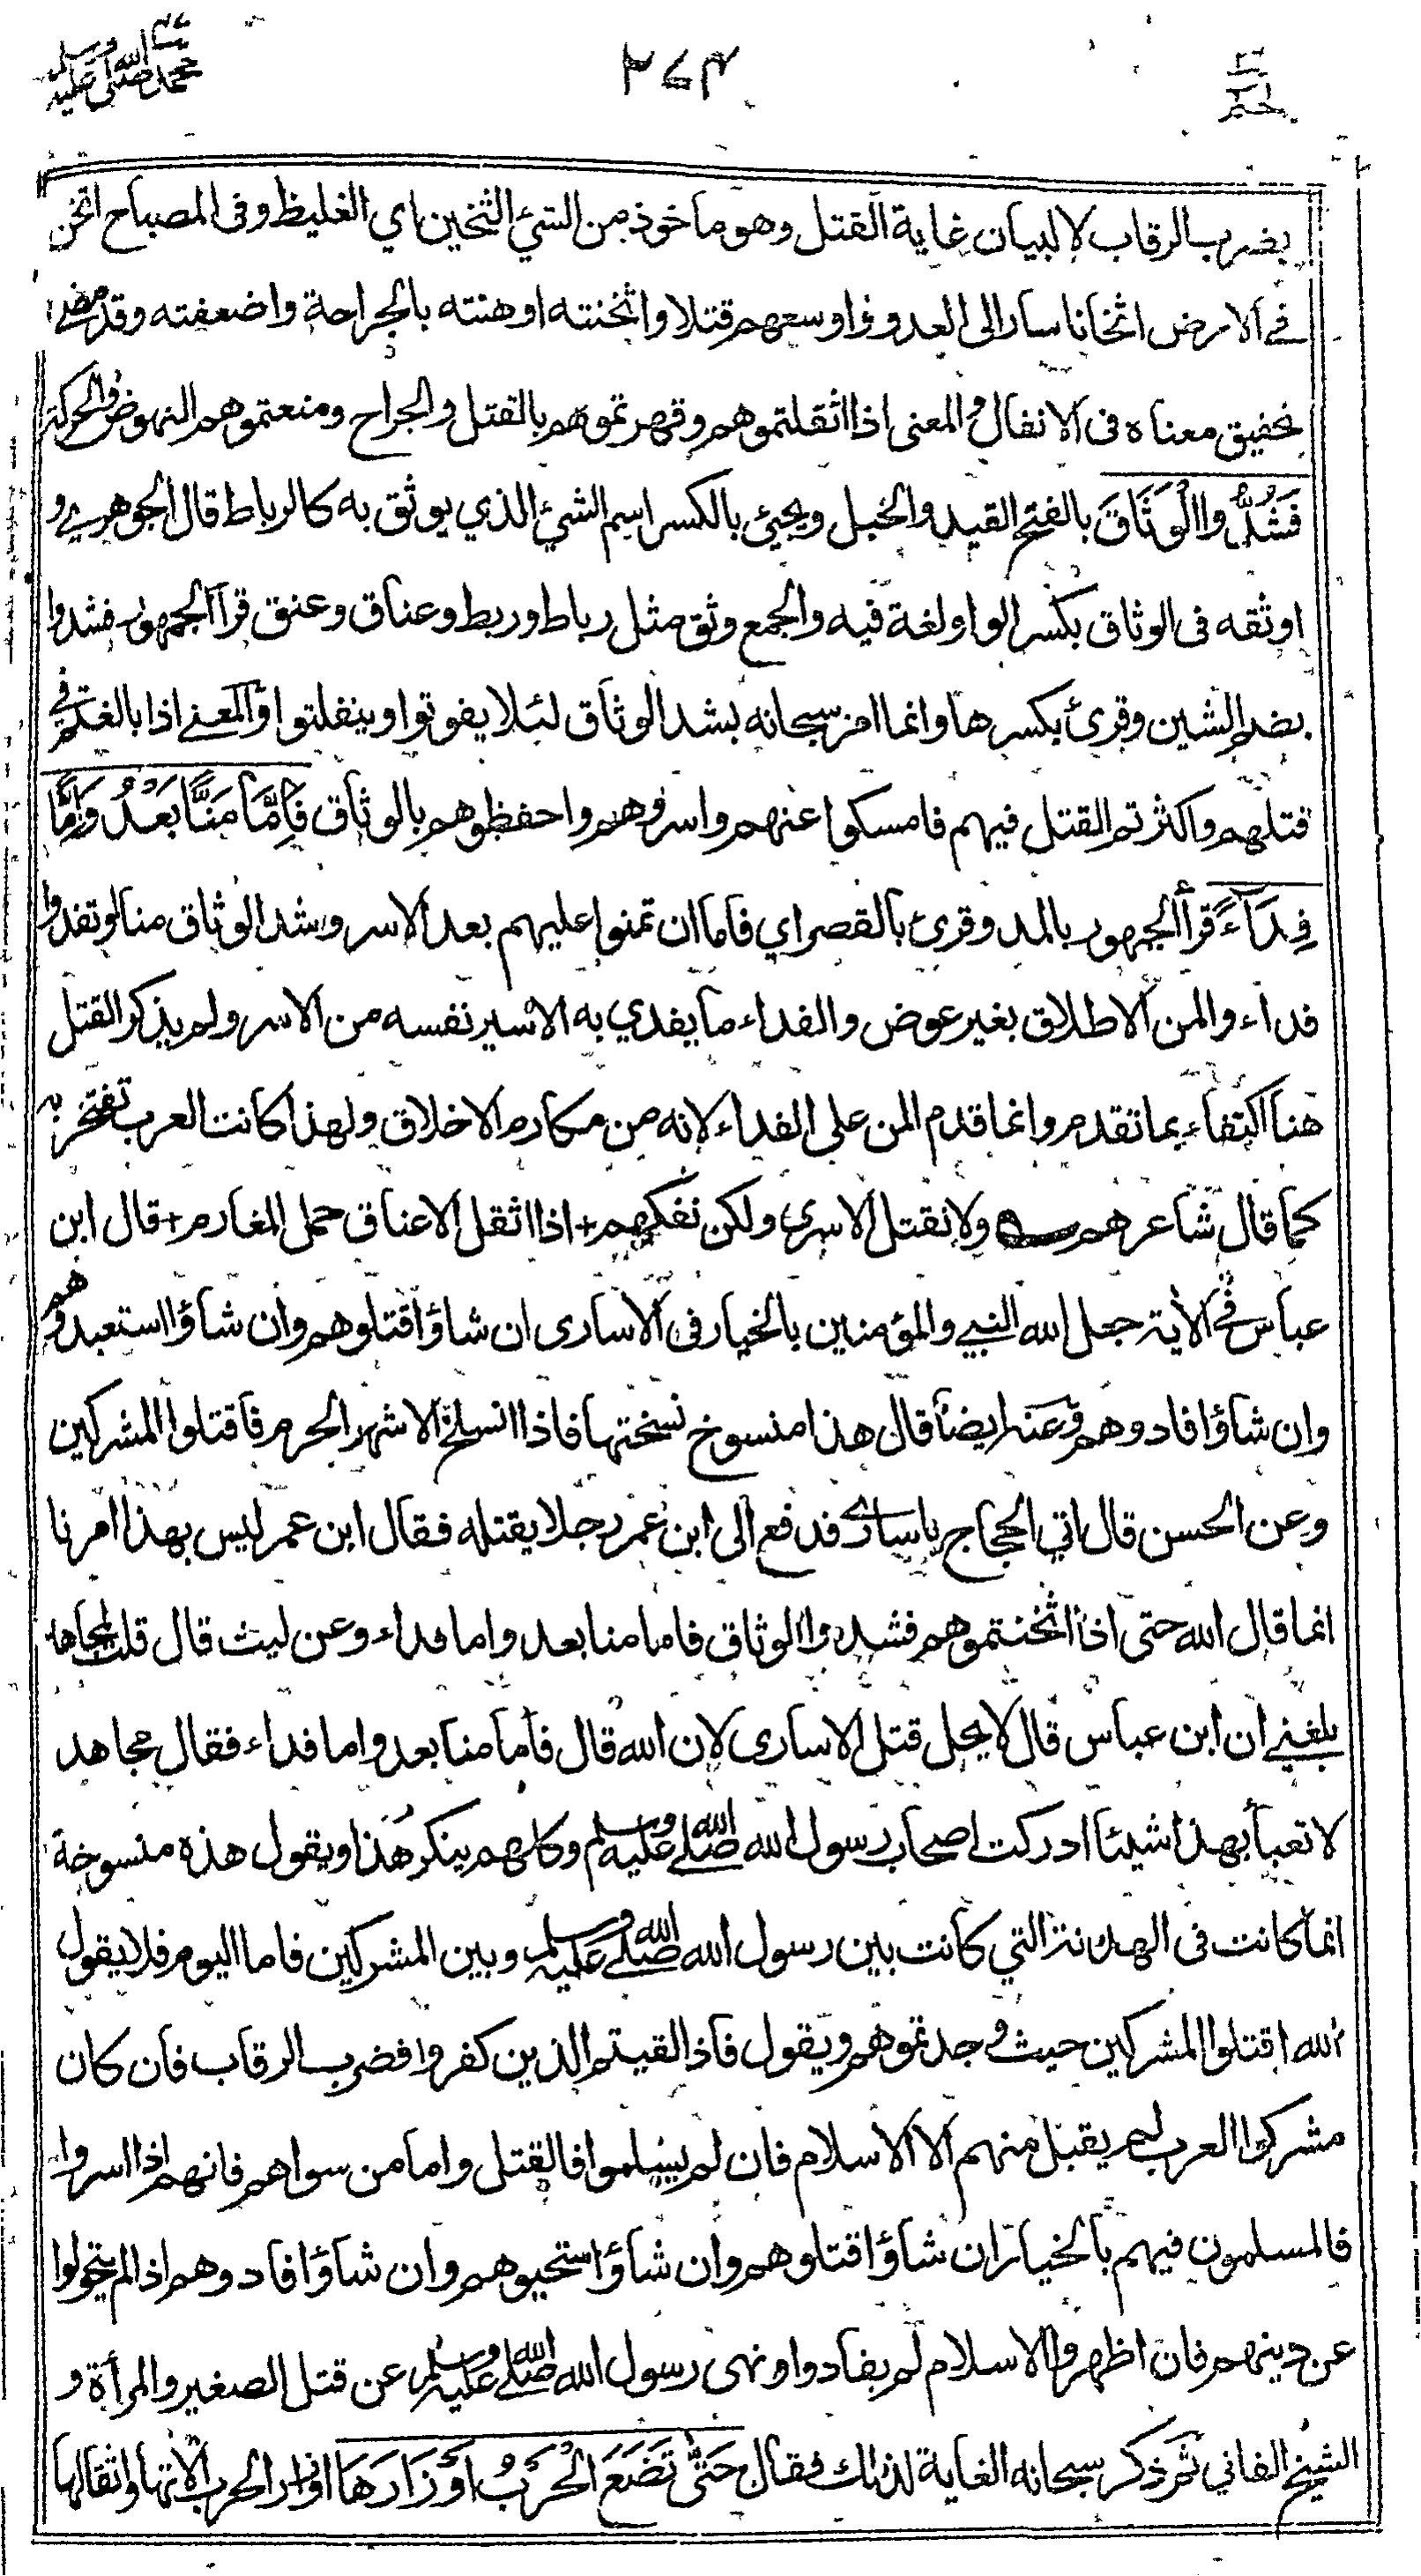 حم ٢٦
٢٦٤
محمد صلى الله عليه وسلم ٤٧
بضرب الرقاب لا لبيان غاية القتل وهو ماخوذ من الشئ الثخين اي الغليظ وفى المصباح اثخن
فے الارض اثخانا سار الى العدو و اوسعهم قتلا واثخنته اوهنته بالجراحة واضعفته وقد مضے
تحقيق معناه فى الانفال والمعنى اذا اثقلتموهم وقهرتموهم بالقتل والجراح ومنعتموهم النهوض والحركة
فَشُدُّوا الْوَثَاقَ بالفتح القيد والحبل ويجئ بالكسر اسم الشئ الذي يوثق به كالرباط قال الجوهرے و
اوثقه فى الوثاق بكسر الواو لغة فيه والجمع وثق مثل رباط وربط وعناق وعنق قرأ الجمهور فشدوا
بضم الشين وقرئ بكسرها وانما امر سبحانه بشد الوثاق لئلا يفوتوا وينفلتوا والمعنے اذا بالغتم فے
قتلهم واكثرتم القتل فيهم فامسكوا عنهم واسروهم واحفظوهم بالوثاق فَاِمَّا مَنًّا بَعْدُ وَاِمَّا
فِدَآءً قرأ الجمهور بالمد وقرئ بالقصر اي فاما ان تمنوا عليهم بعد الاسر وشد الوثاق منا او تفدوا
فداء والمن الاطلاق بغير عوض والفداء ما يفدي به الاسير نفسه من الاسر ولم يذكر القتل
هنا اكتفاء بما تقدم وانما قدم المن على الفداء لانه من مكارم الاخلاق ولهذا كانت العرب تفتخر به
كما قال شاعرهم ولا نقتل الاسرى ولكن نفكهم + اذا اثقل الاعناق حمل المغارم + قال ابن
عباس فے الاية جعل الله النبيے والمؤمنين بالخيار فى الاسارى ان شاؤا قتلوهم وان شاؤا استعبدوهم
وان شاؤا فادوهم وعنه ايضا قال هذا منسوخ نسختها فاذا انسلخ الاشهر الحرم فاقتلوا المشركين
وعن الحسن قال اتي الحجاج باسارى فدفع الى ابن عمر رجلا يقتله فقال ابن عمر ليس بهذا امرنا
انما قال الله حتى اذا اثخنتموهم فشدوا الوثاق فاما منا بعد واما فداء وعن ليث قال قلت لمجاهد
بلغنے ان ابن عباس قال لا يحل قتل الاسارى لان الله قال فاما منا بعد واما فداء فقال مجاهد
لا تعبأ بهذا شيئا ادركت اصحاب رسول الله صلى الله عليه وسلم وكلهم ينكر هذا ويقول هذه منسوخة
انما كانت فى الهدنة التي كانت بين رسول الله صلى الله عليه وسلم وبين المشركين فاما اليوم فلا يقول
الله اقتلوا المشركين حيث وجدتموهم ويقول فاذا لقيتم الذين كفروا فضرب الرقاب فان كان
مشركوا العرب لم يقبل منهم الا الاسلام فان لم يسلموا فالقتل واما من سواهم فانهم اذا اسروا
فالمسلمون فيهم بالخيار ان شاؤا قتلوهم وان شاؤا استحيوهم وان شاؤا فادوهم اذا لم يتحولوا
عن دينهم فان اظهروا الاسلام لم يفادوا ونهى رسول الله صلى الله عليه وسلم عن قتل الصغير والمرأة و
الشيخ الفاني ثم ذكر سبحانه الغاية لذلك فقال حَتّٰى تَضَعَ الْحَرْبُ اَوْزَارَهَا اوزار الحرب الاتها واثقالها